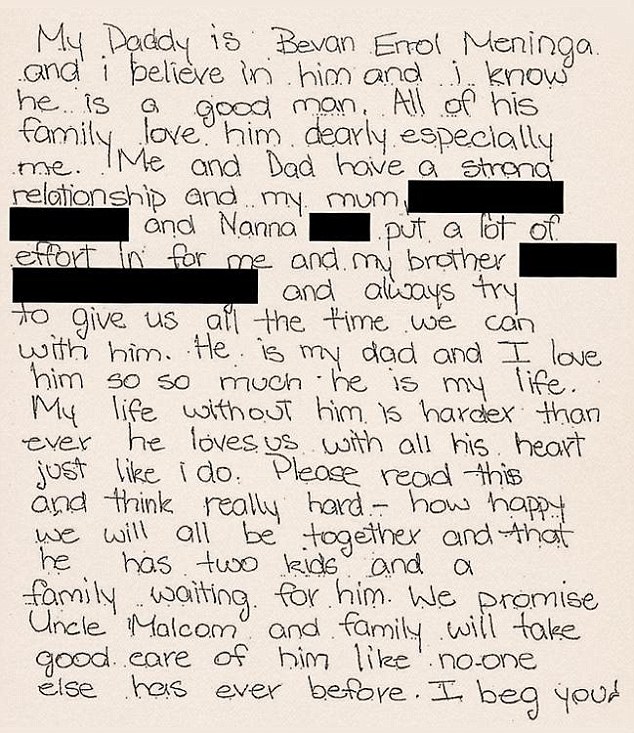 My Daddy is Bevan Errol Meninga
and i believe in him and i know
he is a good man. All of his
family love him dearly especially
me. Me and Dad have a strong
relationship and my mum,
and Nanna put a lot of
effort in for me and my brother
and always try
to give us all the time we can
with him. He is my dad and I love
him so so much he is my life.
My life without him is harder than
ever he loves us with all his heart
just like i do. Please read this
and think really hard - how happy
we will all be together and that
he has two kids and a
family waiting for him. We promise
Uncle Malcom and family will take
good care of him like no-one
else has ever before. I beg you!